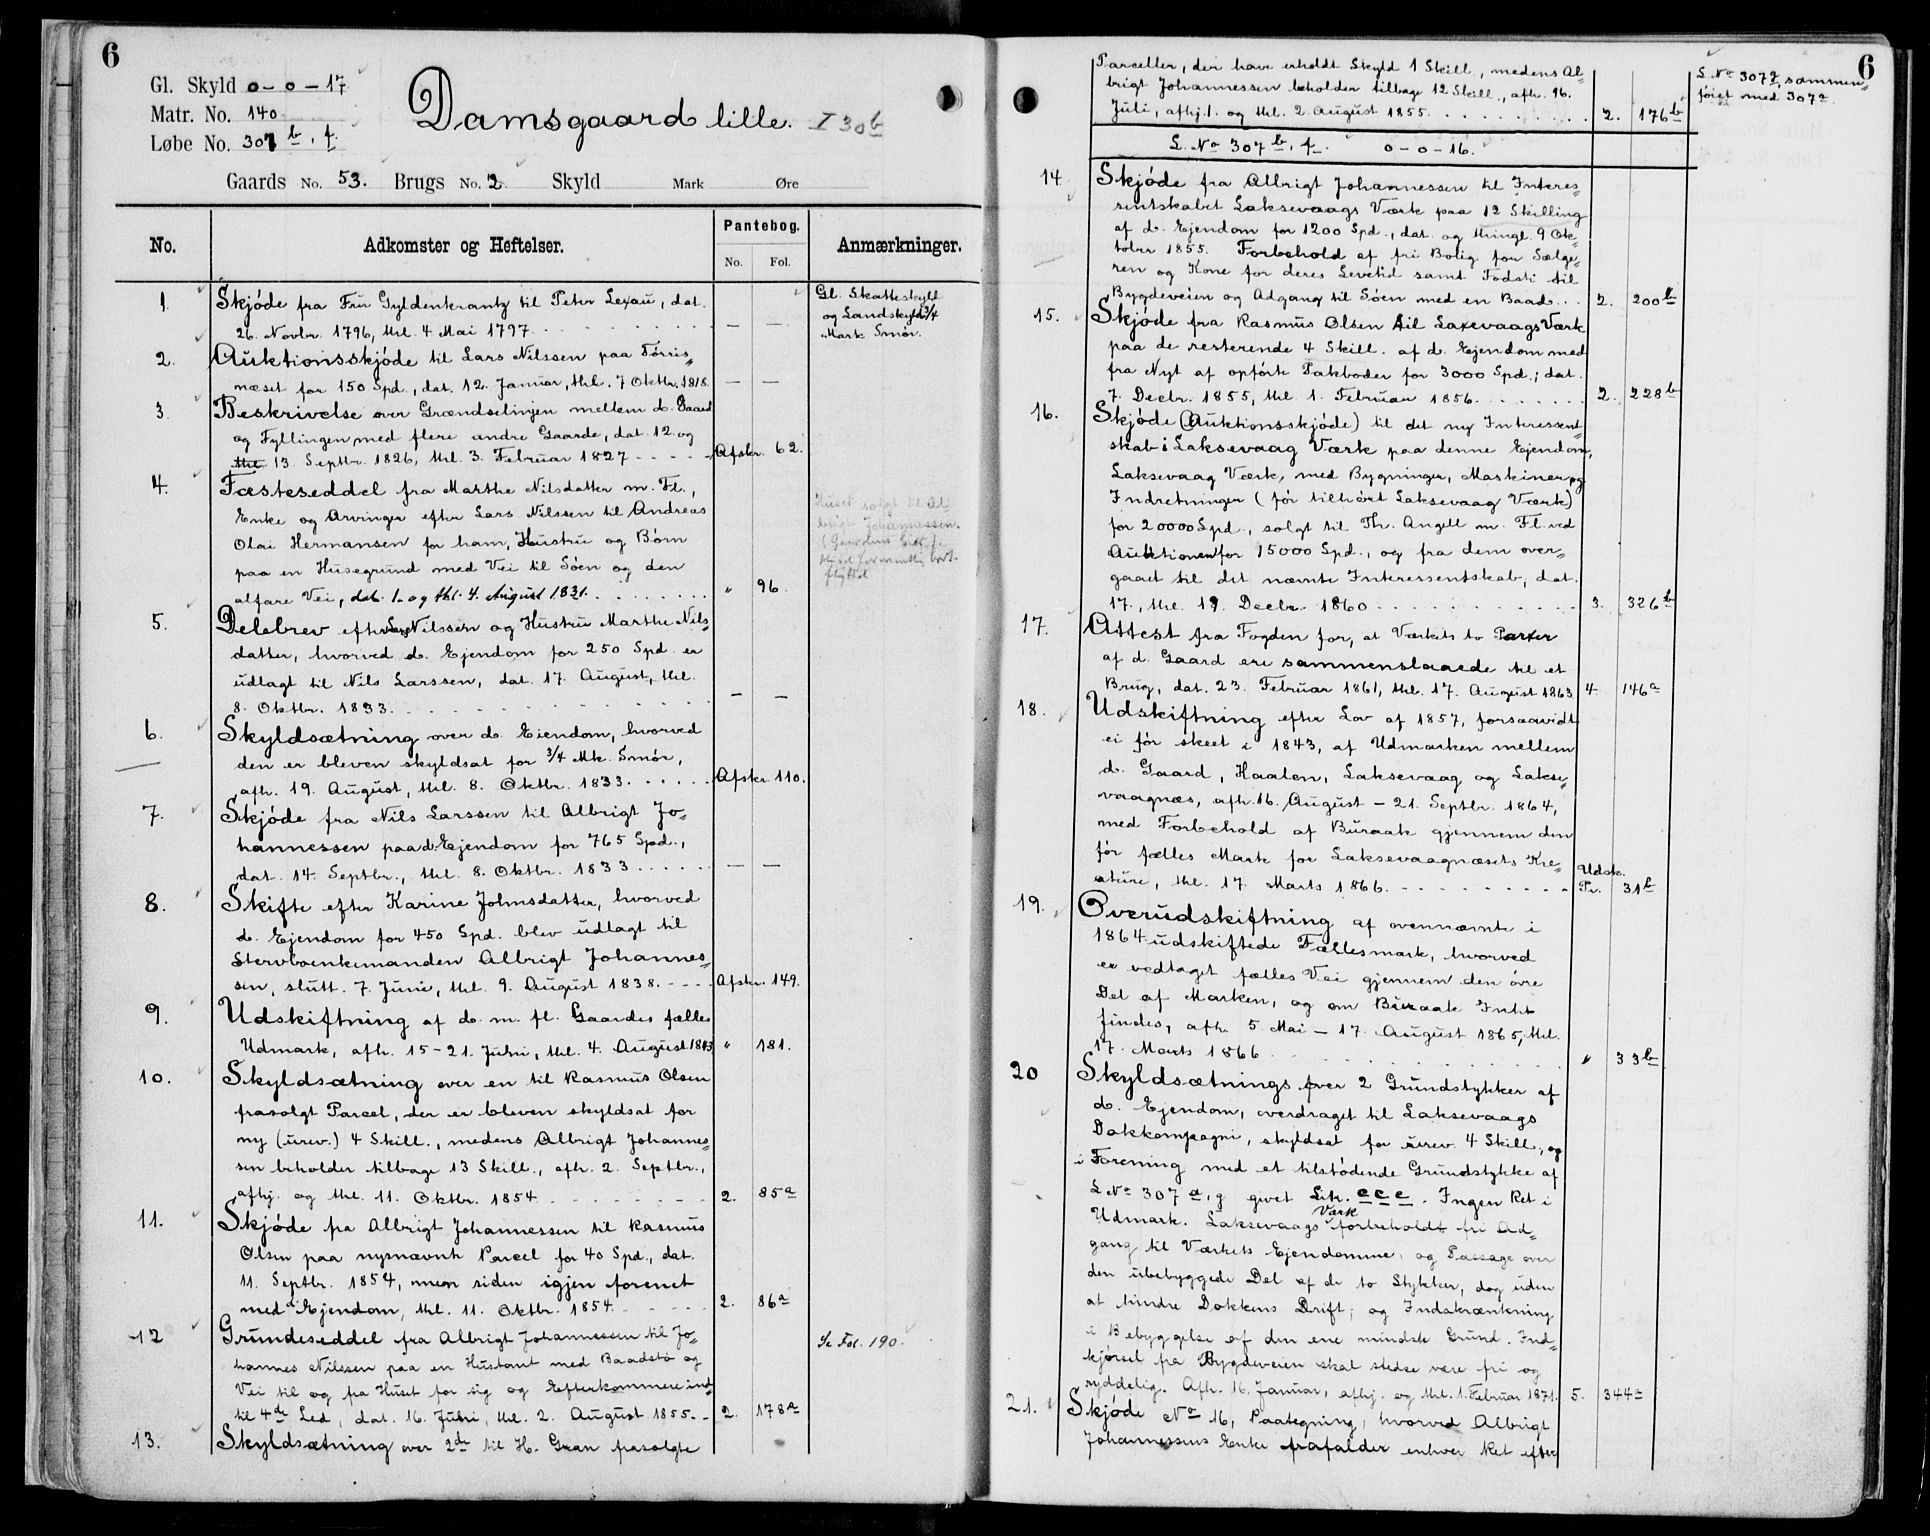 6
Gl. Skyld 0-0-17
Matr. No. 140
Løbe No. 307 b, f.
Damsgaard lille. I 30b
Gaards No. 53. Brugs No. 2 Skyld Mark Øre
No. Adkomster og Heftelser. Pantebog. Anmærkninger.
No. Fol.
1. Skjøde fra Fru Gyldenkrantz til Peter Lexau, dat.
26. Novbr. 1796, thl. 4 Mai 1797. — —
Gl. Skatteskyld
og Landskyld 3/4
Mark Smør.
2. Auktionsskjøde til Lars Nilssen paa Tørris=
næset for 150 Spd., dat. 12. Januar, thl. 7 Oktbr. 1818. — —
3. Beskrivelse over Grændselinjen mellem d. Gaard
og Fyllingen med flere andre Gaarde, dat. 12. og
13. Septbr. 1826, thl. 3. Februar 1827 Afskr. 62.
4. Fæsteseddel fra Marthe Nilsdatter m. Fl.,
Enke og Arvinger efter Lars Nilssen til Andreas
Olai Hermansen for ham, Hustru og Børn
paa en Husegrund med Vei til Søen og den
alfare Vei, dat. 1. og thl. 4. August 1831. " 96.
Huset solgt til Al-
brigt Johannessen.
flyttet
5. Delebrev efter Lars Nilssen og Hustru Marthe Nils=
datter, hvorved d. Ejendom for 250 Spd. er
udlagt til Nils Larssen, dat. 17. August, thl.
8. Oktbr. 1833. — —
6. Skyldsætning over d. Eiendom, hvorved
den er bleven skyldsat for 3/4 Mk. Smør,
afh. 19. August, thl. 8. Oktbr. 1833. Afskr. 110.
7. Skjøde fra Nils Larssen til Albrigt Jo=
hannessen paa d. Ejendom for 765 Spd.,
dat. 14. Septbr., thl. 8. Oktbr. 1833 — —
8. Skifte efter Karine Johnsdatter, hvorved
d. Ejendom for 450 Spd. blev udlagt til
Stervboenkemanden Albrigt Johannes=
sen, slutt. 7. Juni, thl. 9. August 1838. Afskr. 149.
9. Udskiftning af d. m. fl. Gaardes fælles
Udmark, afh. 15-21. Juni, thl. 4. August 1843. " 181.
10. Skyldsætning over en til Rasmus Olsen
frasolgt Parcel, der er bleven skyldsat for
ny (urev.) 4 Skill., medens Albrigt Johannes=
sen beholder tilbage 13 Skill., afh. 2. Septbr.,
afhj. og thl. 11. Oktbr. 1854 2. 85a
11. Skjøde fra Albrigt Johannessen til Rasmus
Olsen paa nysnævnte Parcel for 40 Spd., dat.
11. Septbr. 1854, men siden igjen forenet
med d. Ejendom, thl. 11. Oktbr. 1854. 2. 86a
12 Grundeseddel fra Albrigt Johannessen til Jo=
hannes Nilssen paa en Hustomt med Baadstø og
Vei til og fra Huset for sig og Efterkommere ind=
til 4de Led, dat. 16. Juli, thl. 2. August 1855. 2. 178a
Se Fol. 190.
13. Skyldsætning over 2de til H. Gran frasolgte
6
Parceller, der have erholdt Skyld 1 Skill., medens Al=
brigt Johannessen beholder tilbage 12 Skill., afh. 16.
Juli, afhj. 1. og thl. 2 August 1855. 2. 176b
L. No 307g, sammen=
føiet med 307a.
L. No 307 b, f. 0-0-16.
14. Skjøde fra Albrigt Johannessen til Interes=
sentskabet Laksevaags Værk paa 12 Skilling
af d. Ejendom for 1200 Spd., dat. og thingl. 9 Ok=
tober 1855. Forbehold af fri Bolig for Sælge=
ren og Kone for deres Levetid samt Fodsti til
Bygdeveien og Adgang til Søen med en Baad 2. 200b
15. Skjøde fra Rasmus Olsen til Laxevaags Værk
paa de resterende 4 Skill. af d. Ejendom med
fra Nyt af opførte Pakboder for 3000 Spd.; dat.
7. Decbr. 1855, thl 1. Februar 1856. 2. 228b
16. Skjøde (Auktionsskjøde) til det ny Interessent=
skab i Laksevaag Værk paa denne Ejendom,
Laksevaag Værk, med Bygninger, Maskiner og
Indretninger (før tilhørt Laksevaag Værk)
for 20000 Spd., solgt til Th. Angell m. Fl. ved
Auktionen for 15000 Spd., og fra dem over=
gaaet til det nævnte Interessentskab, dat.
17., thl. 19. Decbr. 1860 3. 326b
17. Attest fra Fogden for, at Værkets to Parter
af d. Gaard ere sammenslaaede til et
Brug, dat. 23. Februar 1861, thl. 17. August 1863 4. 146a
18. Udskiftning efter Lov af 1857, forsaavidt
ei før skeet i 1843, af Udmarken mellem
d. Gaard, Haalen, Laksevaag og Lakse=
vaagnæs, afh. 16. August - 21. Septbr. 1864,
med Forbehold af Buraak gjennem den
før fælles Mark for Laksevaagnæsets Kre=
ature, thl. 17. Marts 1866. Udsk. Pr. 31b
19. Overudskiftning af ovennævnte i
1864 udskiftede Fællesmark, hvorved
er vedtaget fælles Vei gjennem den øvre
Del af Marken, og om Buraak Intet
findes, afh. 5. Mai - 17. August 1865, thl.
17. Marts 1866 " 33b
20 Skyldsætnings over 2 Grundstykker af
d. Ejendom, overdraget til Laksevaags
Dokkompagni, skyldsat for urev. 4 Skill., og
i Forening med et tilstødende Grundstykke af
L No 307 a, g givet Litr. c c c. Ingen Ret i
Udmark. Laksevaags Værk forbeholdt fri Ad=
gang til Værkets Ejendomme, og Passage over
den ubebyggede Del af de to Stykker, dog uden
at hindre Dokkens Drift; og Indskrænkning
i Bebyggelse af den ene mindste Grund. Ind=
kjørsel fra Bygdeveien skal stedse være fri og
ryddelig. Afh. 16. Januar, afhj. og thl. 1. Februar 1871. 5. 344a
21. Skjøde No 16, Paategning, hvorved Albrigt
Johannessens Enke frafalder enhver Ret efter